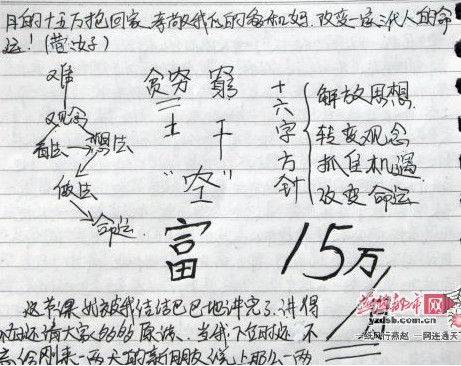 月的十五万抱回家孝敬我们的爸和妈.改变一家三代人的命
运!(带好子)
难
观念
看法 想法
做法
命运
贫穷 窮
土 干
"空"
富
十六字方针
解放思想.
转变观念
抓住机遇
改变命运
15万/月
这节课 被我结结巴巴地讲完了.讲得
不 还请大家多多多多原谅.当我下台时还不
给刚来一两天的新朋友 上那么一两
燕赵都市网
yzdsb.com.cn
一纸风行燕赵 一网连通天下